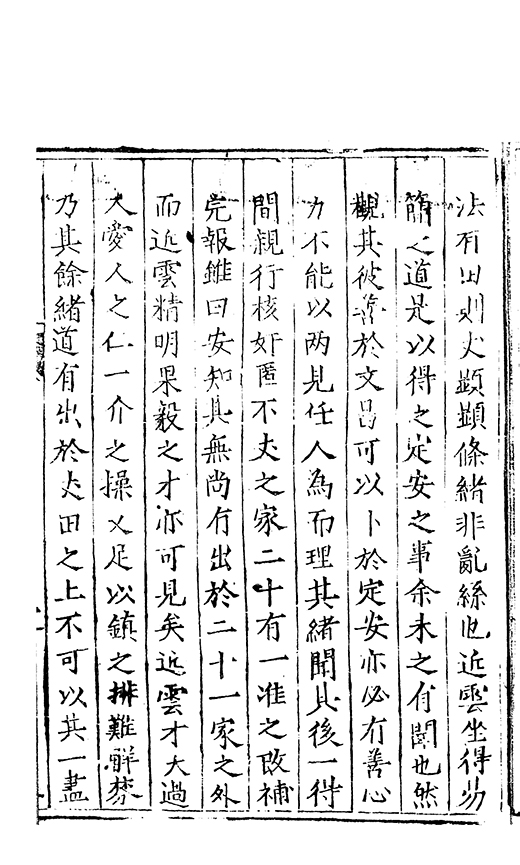 法有田則丈顯顯條緒非亂絲也近雲坐得易
簡之道是以得之定安之事余未之有聞也然
觀其彼善於文昌可以卜於定安亦必有善心
力不能以两見任人為而理其緒聞其後一得
間親行核奸匿不丈之家二十有一准之改補
完報雖曰安知其無尚有出於二十一家之外
而近雲精明果毅之才亦可見矣近雲才大過
人愛人之仁一介之操又足以鎮之排難觧棼
乃其餘緒道有出於丈田之上不可以其一盡